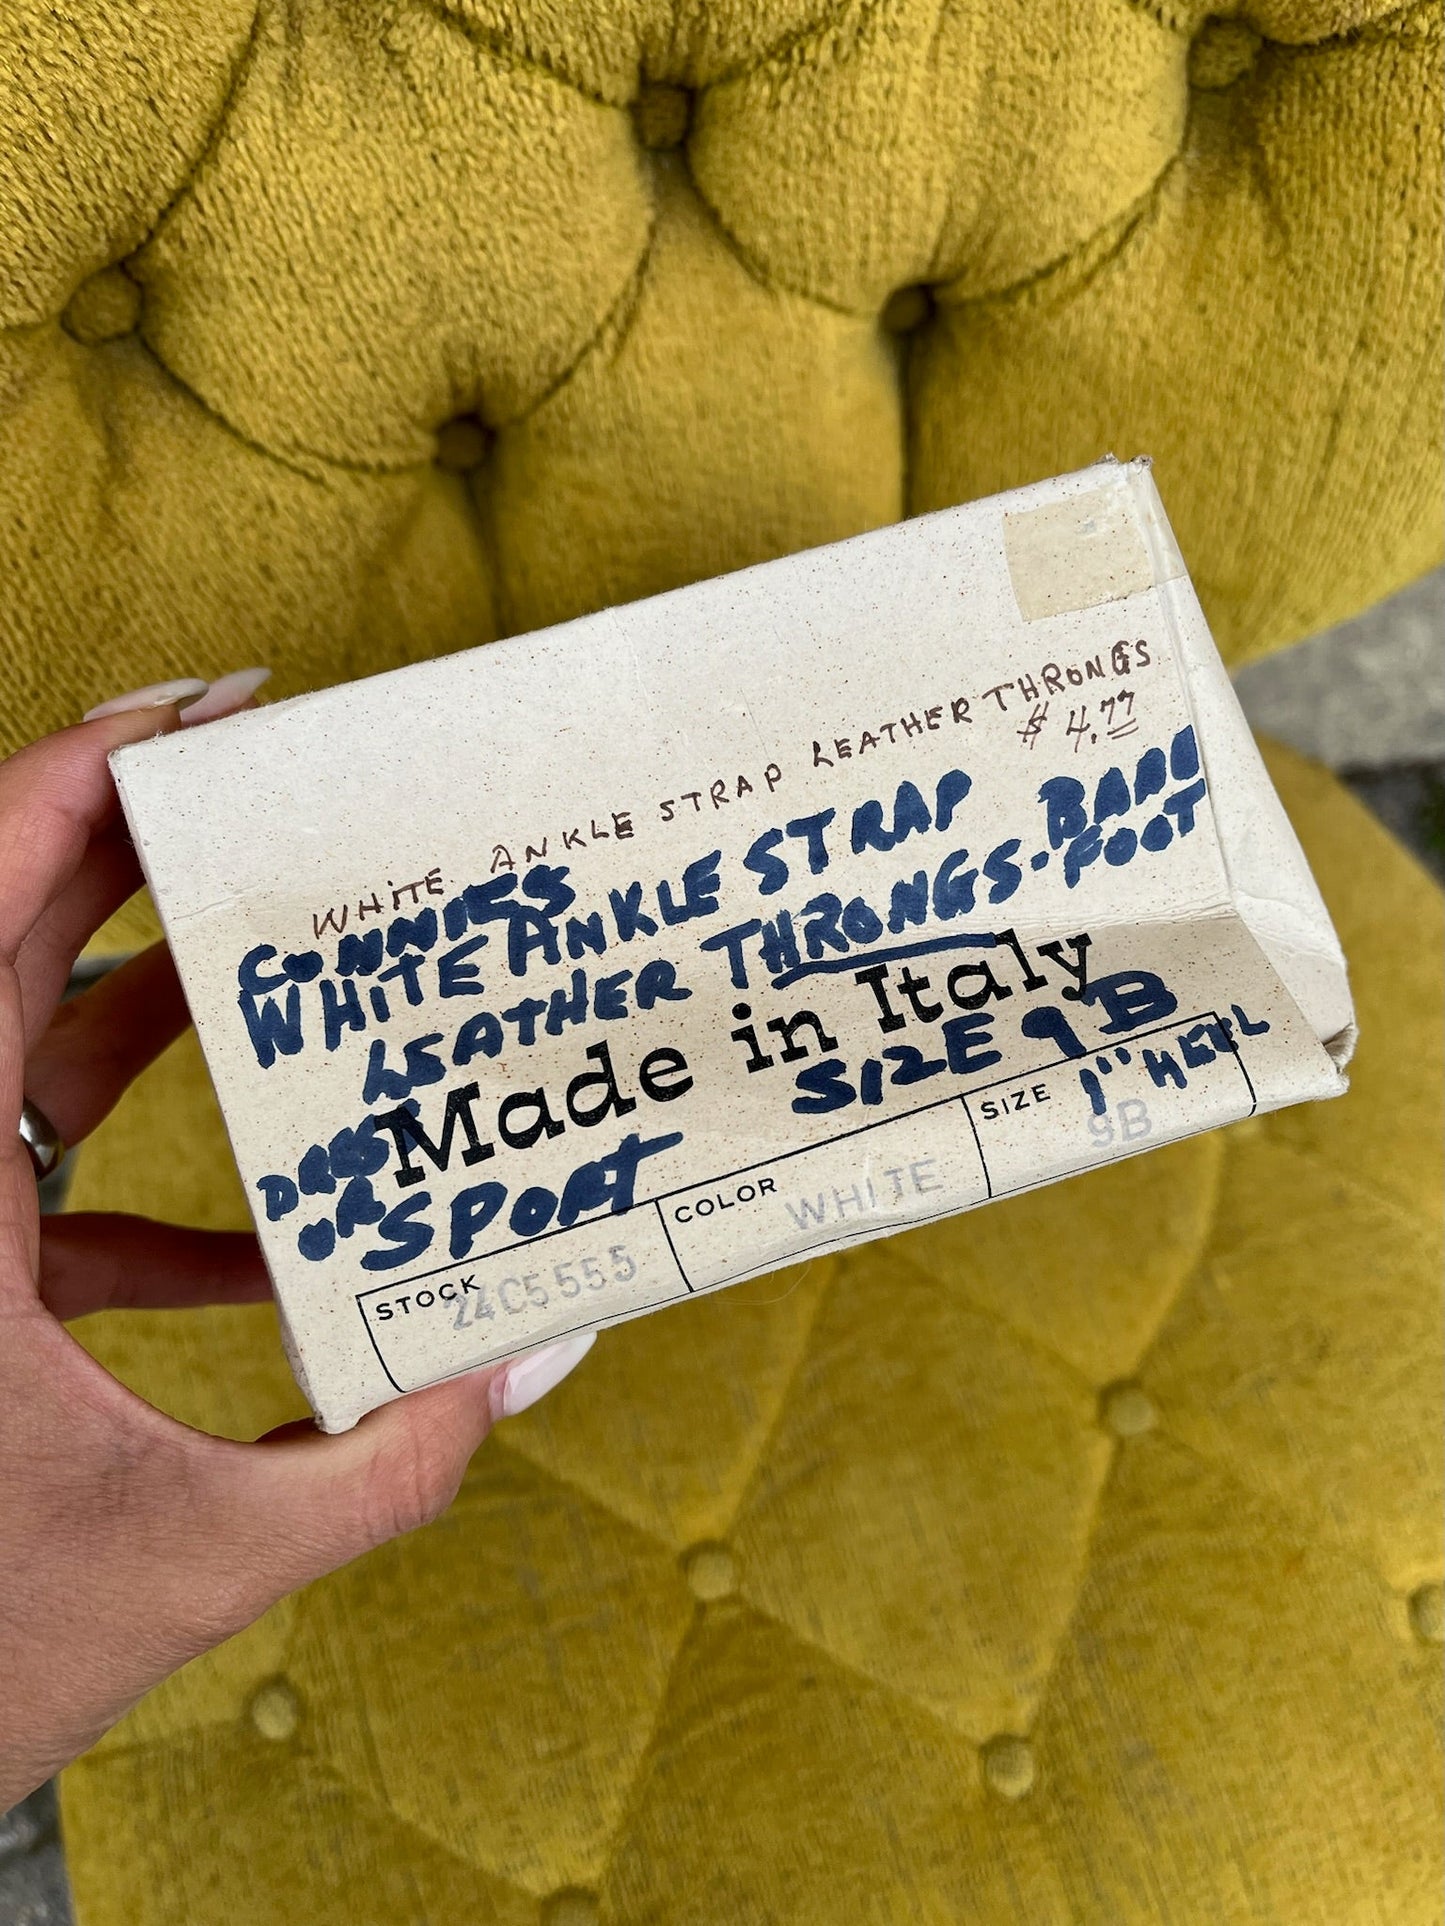 WHITE ANKLE STRAP LEATHER THRONGS
$ 4.77
CONNIES
WHITE ANKLE STRAP
LEATHER THRONGS. BARE
FOOT
Made in Italy
SIZE 9 B
1" HEEL
DRESS
OR SPORT
STOCK 24C5555
COLOR WHITE
SIZE 9B